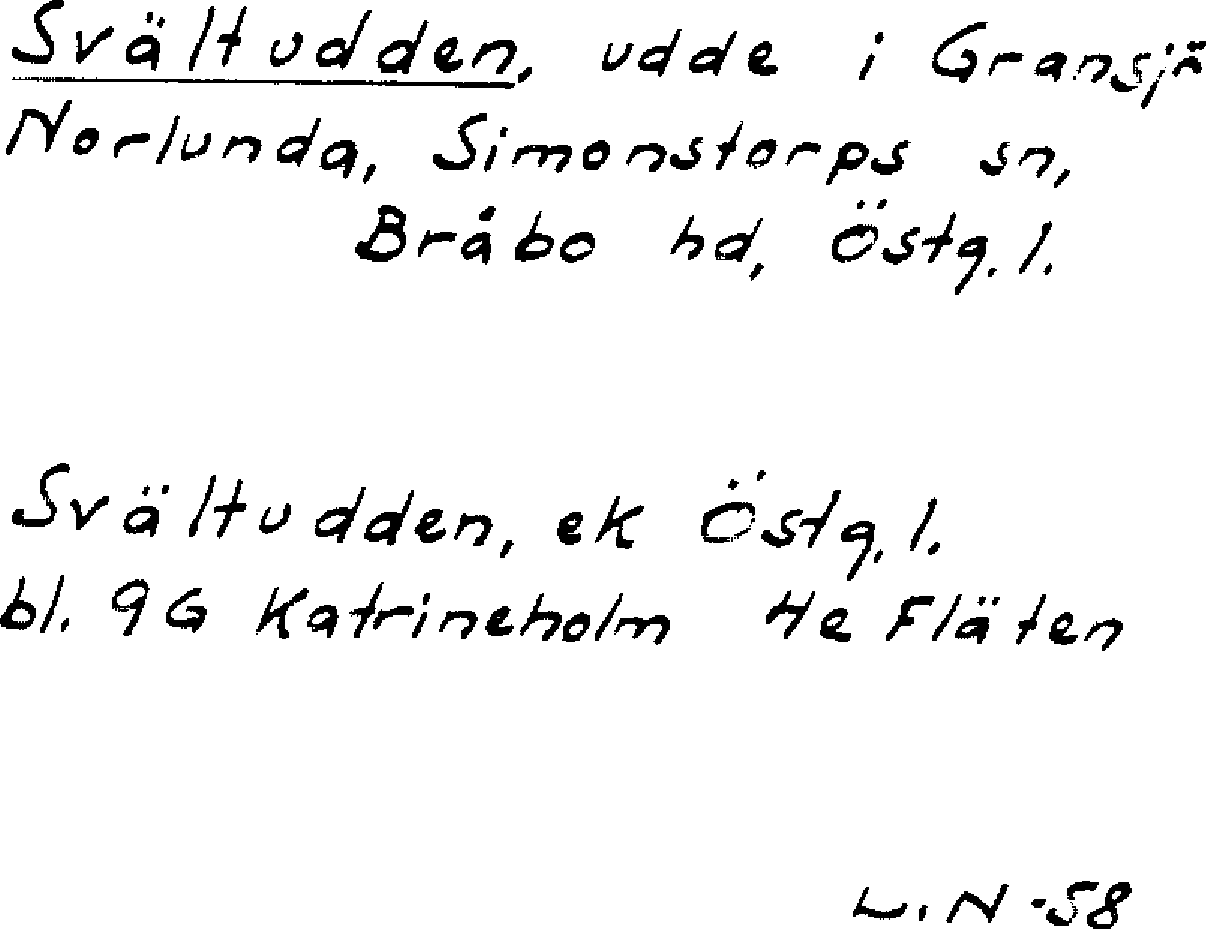 Svältudden, udde i Gransjö
Norlunda, Simonstorps sn,
Bråbo hd, Östg. l.
Svältudden, ek Östg. l.
bl. 9G Katrineholm 4e Fläten
L. N -58